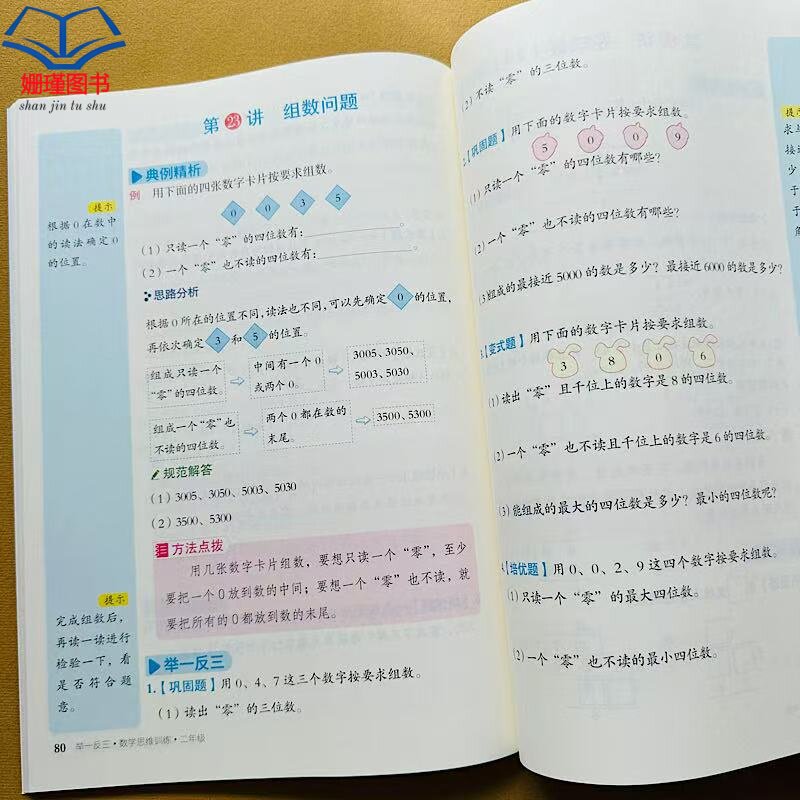 姗瑾图书
shan jin tu shu
第23讲 组数问题
典例精析
例 用下面的四张数字卡片按要求组数。
0 0 3 5
提示
根据0在数中
的读法确定0
的位置。
(1)只读一个“零”的四位数有:。
(2)一个“零”也不读的四位数有:。
思路分析
根据0所在的位置不同,读法也不同,可以先确定0的位置,
再依次确定3和5的位置。
组成只读一个
“零”的四位数。
中间有一个0
或两个0。
3005、3050、
5003、5030
组成一个“零”也
不读的四位数。
两个0都在数的
末尾。
3500、5300
规范解答
(1)3005、3050、5003、5030
(2)3500、5300
方法点拨
用几张数字卡片组数,要想只读一个“零”,至少
要把一个0放到数的中间;要想一个“零”也不读,就
要把所有的0都放到数的末尾。
提示
完成组数后,
再读一读进行
检验一下,看
是否符合题
意。
举一反三
1.【巩固题】用0、4、7这三个数字按要求组数。
(1)读出“零”的三位数。
80 举一反三·数学思维训练·二年级
(2)不读“零”的三位数。
2.【巩固题】用下面的数字卡片按要求组数。
5 0 0 9
(1)只读一个“零”的四位数有哪些?
(2)一个“零”也不读的四位数有哪些?
(3)组成的最接近5000的数是多少?最接近6000的数是多少?
3.【变式题】用下面的数字卡片按要求组数。
3 8 0 6
(1)读出“零”且千位上的数字是8的四位数。
(2)一个“零”也不读且千位上的数字是6的四位数。
(3)能组成的最大的四位数是多少?最小的四位数呢?
4.【培优题】用0、0、2、9这四个数字按要求组数。
(1)只读一个“零”的最大四位数。
(2)一个“零”也不读的最小四位数。
提示
求
接近
少
于
于